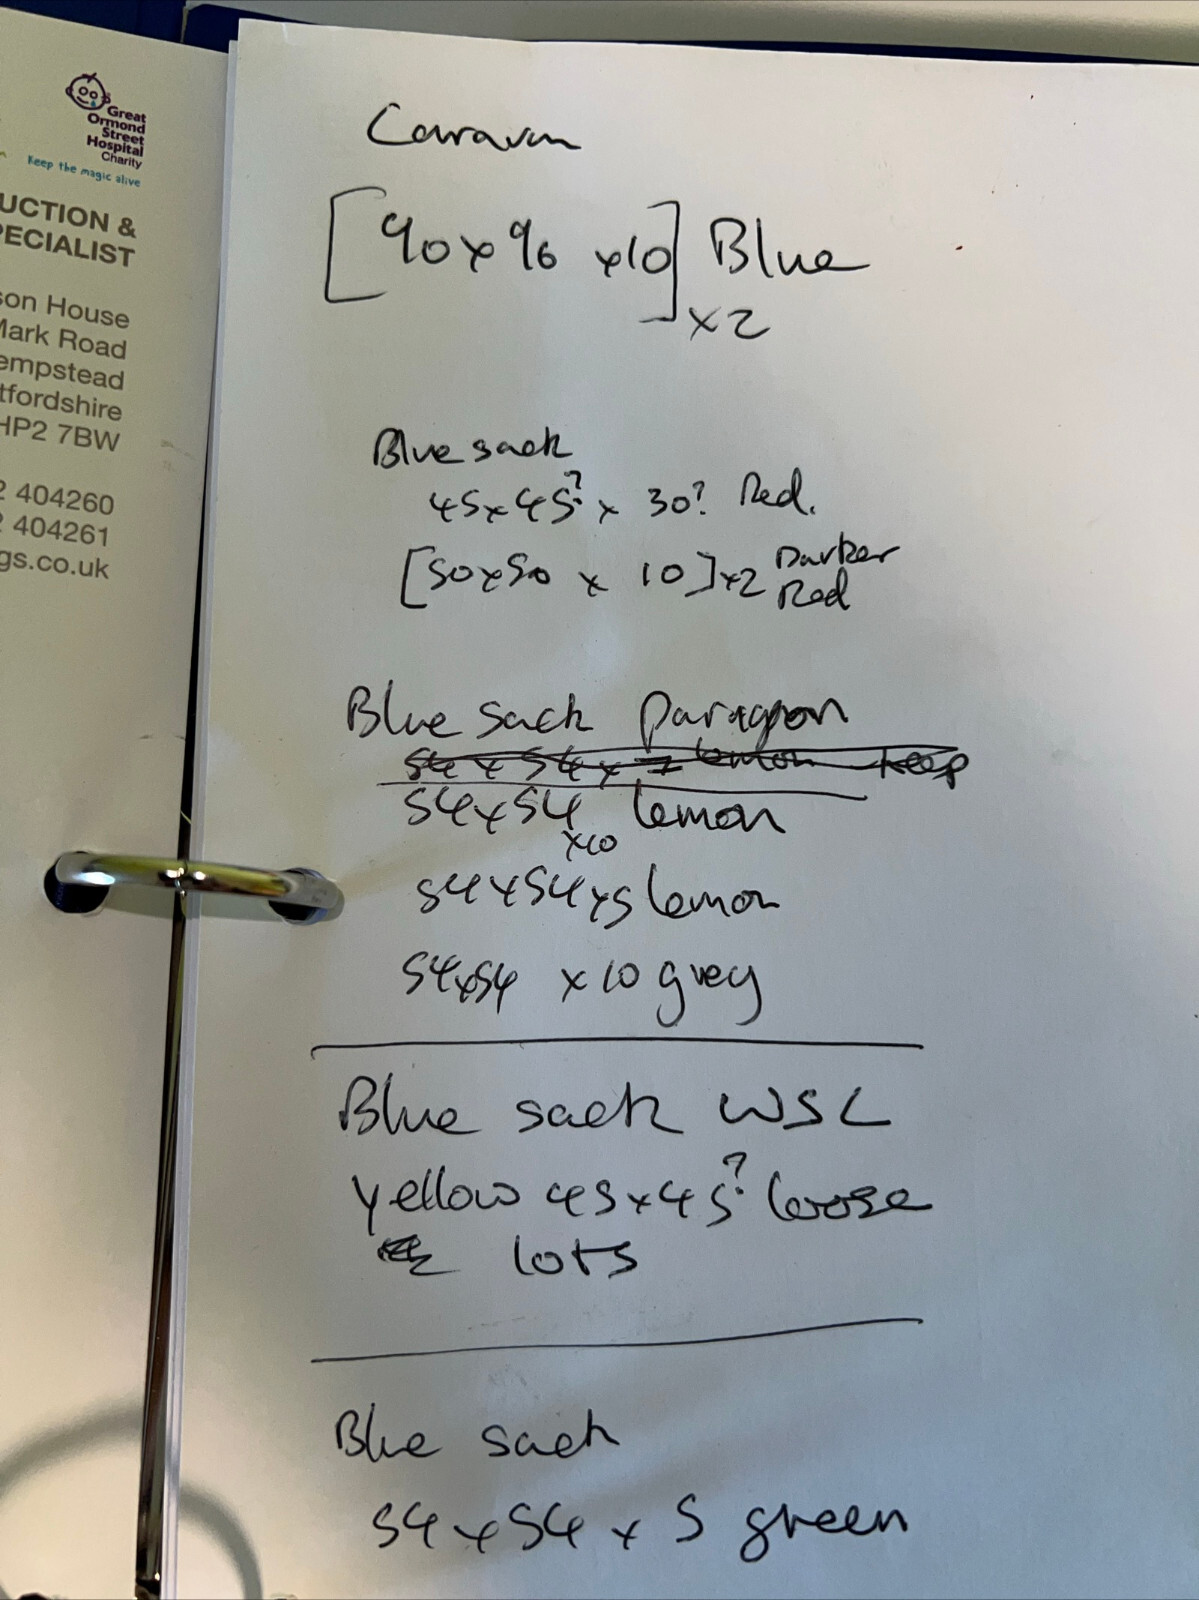 Great
Ormond
Street
Hospital
Charity
Keep the magic alive
UCTION &
PECIALIST
son House
Mark Road
empstead
tfordshire
HP2 7BW
2 404260
2 404261
gs.co.uk
Caravan
[90 x 90 x10] Blue
x2
Blue sack
45x45? x 30? Red.
[50x50 x 10]x2 Darker
Red
Blue sack Paragon
54 x 54 x = lemon keep
54x54 lemon
x10
54x54x5 lemon
54x54 x10 grey
Blue sack WSL
yellow 45x45? loose
lots
Blue sack
54 x 54 x 5 green